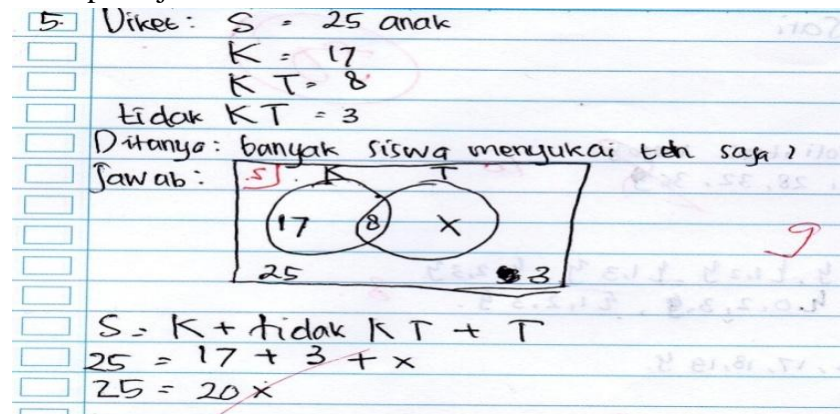 5. Diket: S = 25 anak
K = 17
KT = 8
tidak KT = 3
Ditanya: banyak siswa menyukai teh saja?
Jawab: S K T
17 8 X
25 3
9
S = K + tidak KT + T
25 = 17 + 3 + x
25 = 20 x